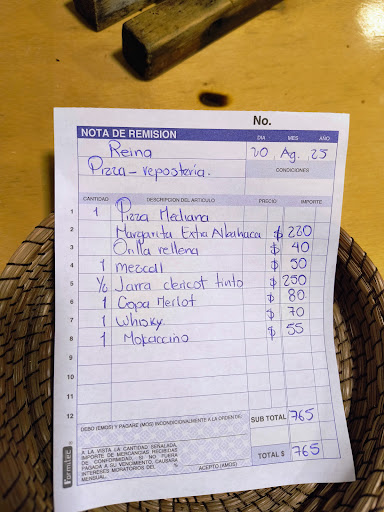 No.
NOTA DE REMISION DIA MES AÑO
Reina 20 Ag. 25
Pizza - reposteria. CONDICIONES
CANTIDAD DESCRIPCION DEL ARTICULO PRECIO IMPORTE
1 1 Pizza Mediana
2 Margarita Extra Albahaca $ 220
3 Orilla rellena $ 40
4 1 mezcal $ 50
5 1/2 Jarra clericot tinto $ 250
6 1 Copa Merlot $ 80
7 1 Whisky $ 70
8 1 Mokaccino $ 55
9
10
11
12
DEBO (EMOS) Y PAGARE (MOS) INCONDICIONALMENTE A LA ORDEN DE: SUB TOTAL 765
A LA VISTA LA CANTIDAD SEÑALADA,
IMPORTE DE MERCANCIAS RECIBIDAS
DE CONFORMIDAD, SI NO FUERA
PAGADA A SU VENCIMIENTO, CAUSARA
INTERESES MORATORIOS DEL % ACEPTO (AMOS) TOTAL $ 765
MENSUAL.
Formitec